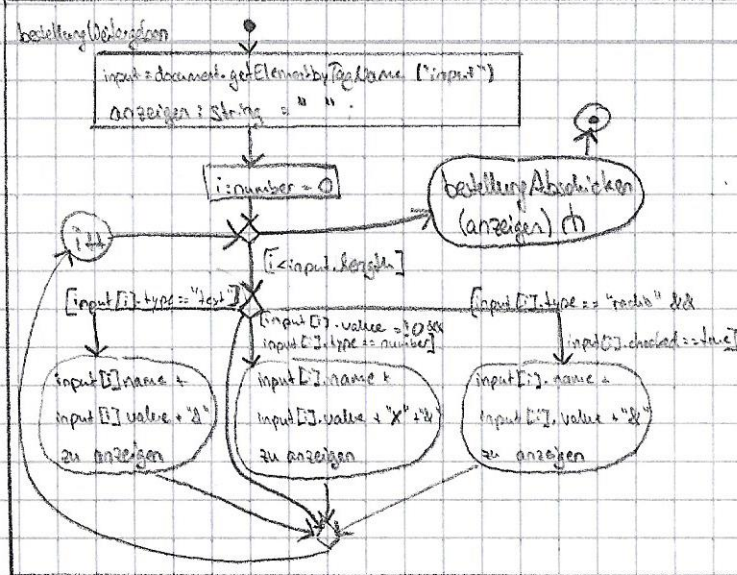 bestellungWeitergeben
input = document.getElementbyTagName ("input")
anzeigen : string = " "
i:number = 0
bestellungAbschicken
(anzeigen)
i++
[i<input.length]
[input[i].type=="text"]
[input[i].value =!0 &&
input[i].type == number]
[input[i].type == "radio" &&
input[i].checked==true]
input[i].name +
input[i].value + "&"
zu anzeigen
input[i].name +
input[i].value + "X"+"&"
zu anzeigen
input[i].name +
input[i].value + "&"
zu anzeigen